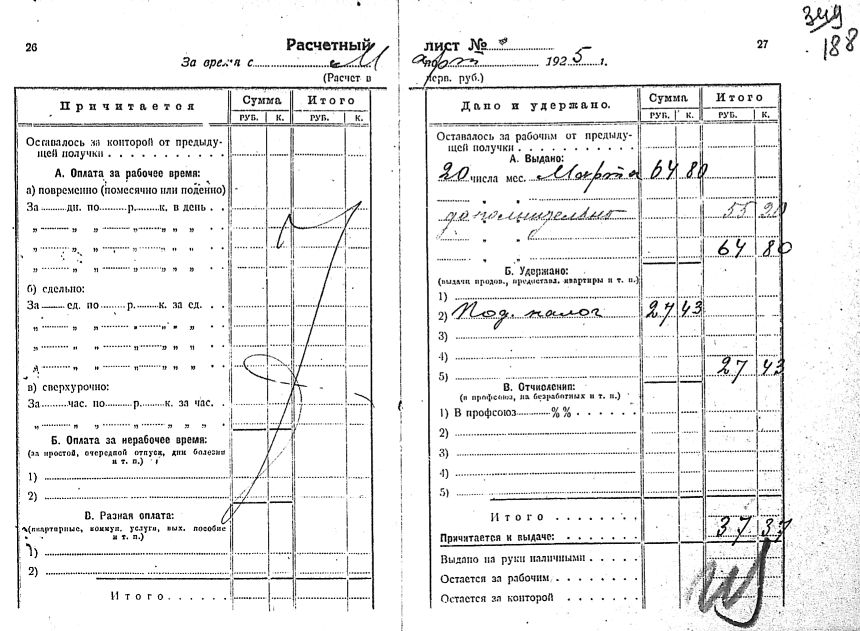 349
188
26
Расчетный
За время с М
(Расчет в
Причитается
Сумма
Итого
РУБ. К. РУБ. К.
Оставалось за конторой от предыду-
щей получки
А. Оплата за рабочее время:
а) повременно (помесячно или поденно)
За дн. по р. к. в день
„ „ „ „ „ „ „
„ „ „ „ „ „ „
„ „ „ „ „ „ „
б) сдельно:
За ед. по р. к. за ед.
„ „ „ „ „ „ „
„ „ „ „ „ „ „
„ „ „ „ „ „ „
в) сверхурочно:
За час. по р. к. за час.
„ „ „ „ „ „ „
Б. Оплата за нерабочее время:
(за простой, очередной отпуск, дни болезни
и т. п.)
1)
2)
В. Разная оплата:
(квартирные, коммун. услуги, вых. пособие
и т. п.)
1)
2)
Итого
лист №
27
арт 1925 г.
черв. руб.)
Дано и удержано.
Сумма
Итого
РУБ. К. РУБ. К.
Оставалось за рабочим от предыду-
щей получки
А. Выдано:
20 числа мес. Марта 64 80
„ „
дополнительно 55 20
„ „ 64 80
Б. Удержано:
(выдачи продов., предоставл. квартиры и т. п.)
1)
2) Под. налог 27 43
3)
4)
5) 27 43
В. Отчисления:
(в профсоюз, на безработных и т. п.)
1) В профсоюз %%
2)
3)
4)
5)
Итого
Причитается к выдаче: 37 37
Выдано на руки наличными
Остается за рабочим
Остается за конторой